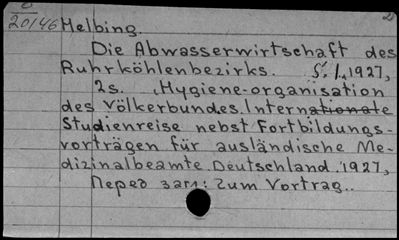 20146 Helbing.
Die Abwasserwirtschaft des
Ruhrköhlenbezirks. S. l., 1927,
2s. (Hygiene-organisation
des Völkerbundes. Internationate
Studienreise nebst Fortbildungs-
vorträgen für ausländische Me-
dizinalbeamte. Deutschland. 1927,
Перед загл: Zum Vortrag..